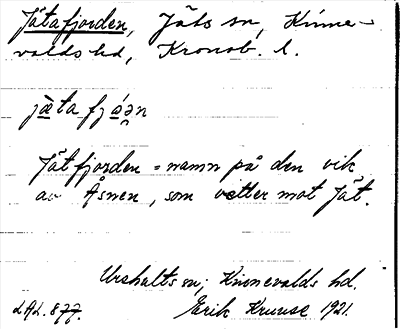 Jätafjorden, Jäts sn, Kinne-
valds hd, Kronob. l.
jätafjóən
Jätfjorden = namn på den vik
av Åsnen, som vetter mot Jät.
Urshults sn; Kinnevalds hd.
LAL. 877. Erik Kruuse 1921.